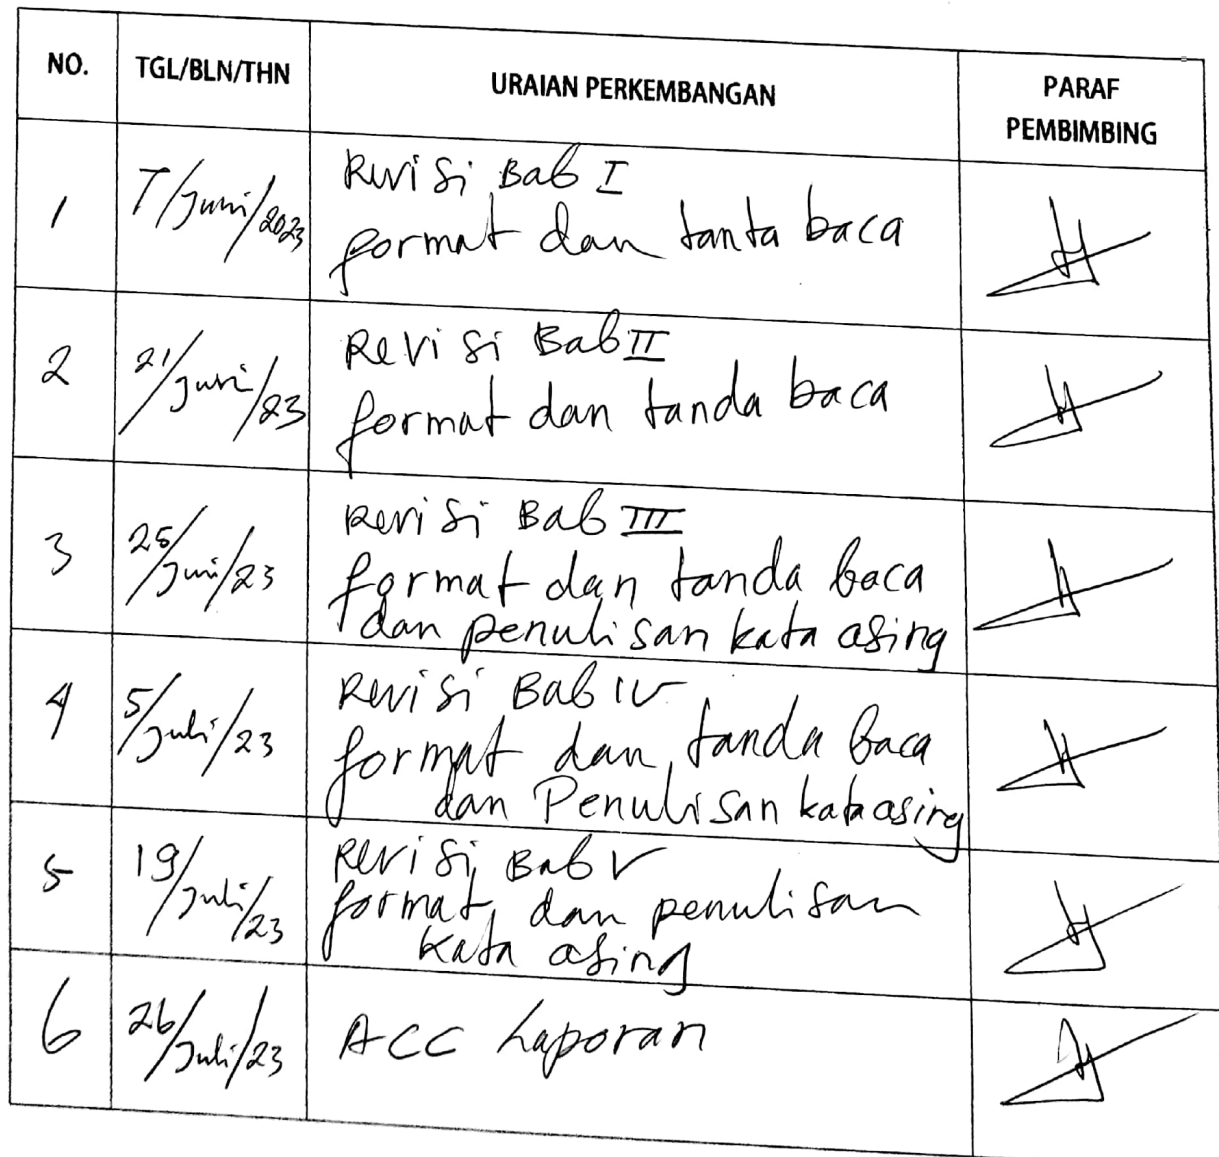 NO. TGL/BLN/THN URAIAN PERKEMBANGAN PARAF PEMBIMBING
1 7/Juni/2023 Revisi Bab I
format dan tanta baca
2 21/Juni/23 Revisi Bab II
format dan tanda baca
3 25/Juni/23 Revisi Bab III
format dan tanda baca
dan penulisan kata asing
4 5/Juli/23 Revisi Bab IV
format dan tanda baca
dan Penulisan kata asing
5 19/Juli/23 Revisi Bab V
format, dan penulisan
kata asing
6 26/Juli/23 ACC Laporan